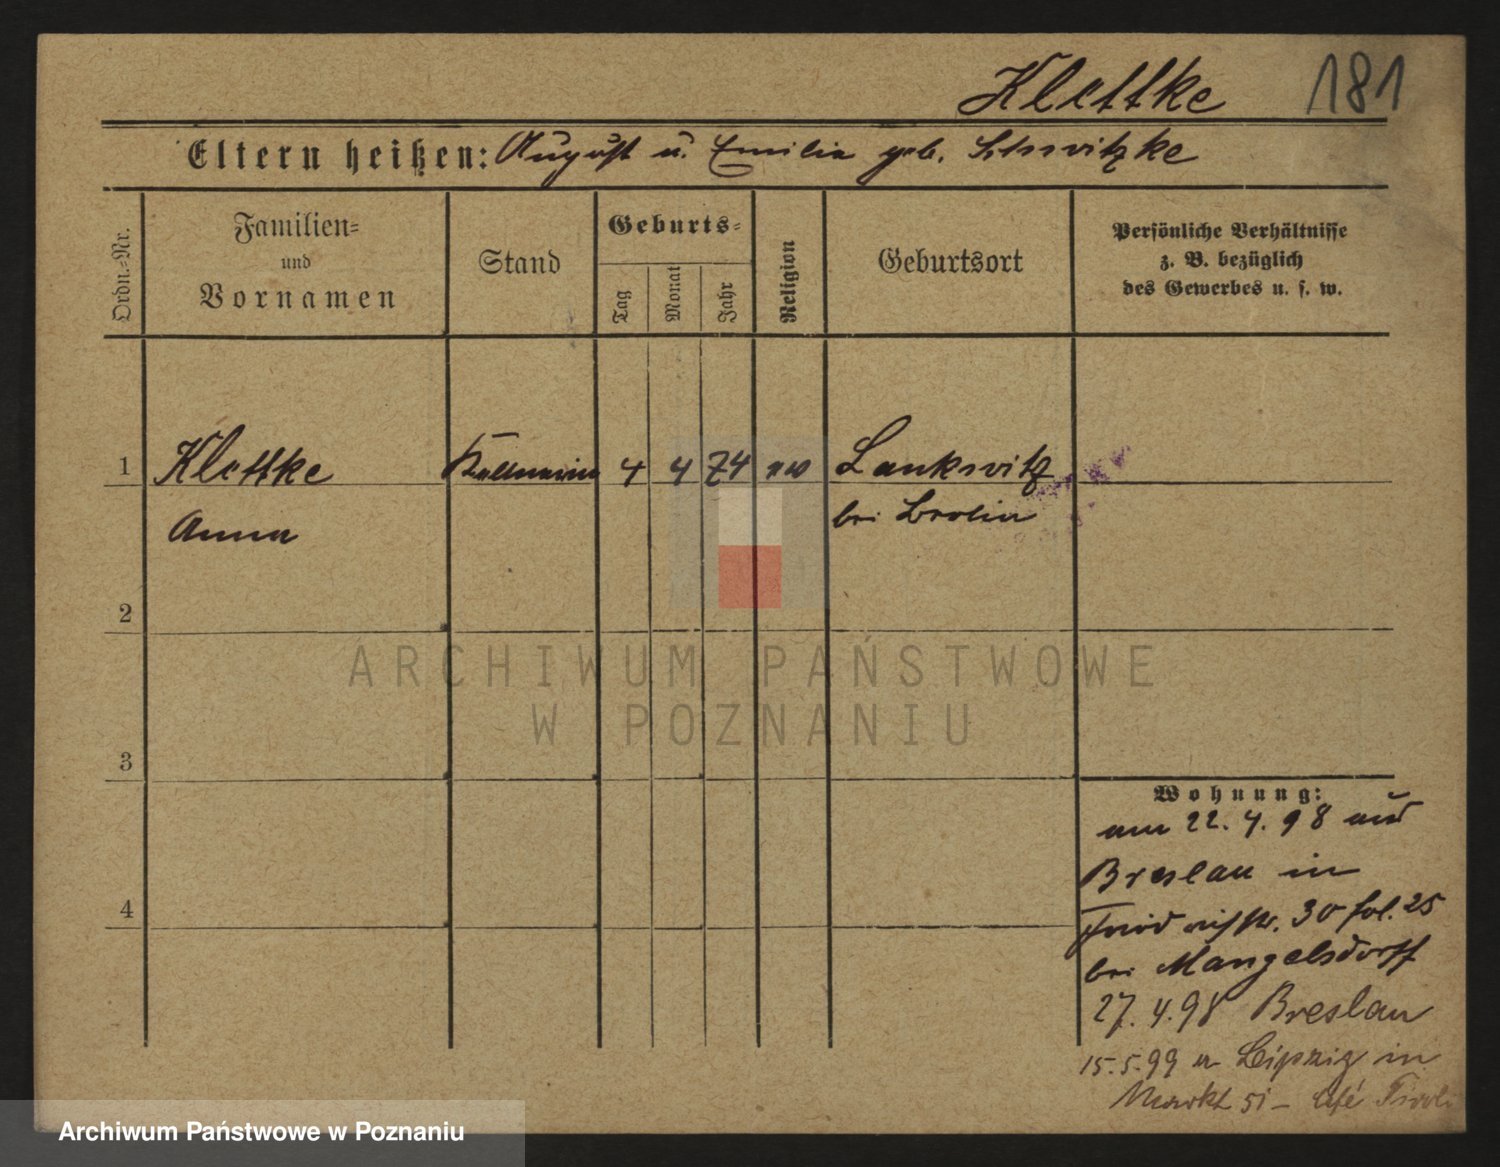 Klettke 181
Eltern heißen: August u. Emilia geb.
Ordn.-Nr.
Familien-
und
Vornamen
Stand
Geburts-
Tag
Monat
Jahr
Religion
Geburtsort
Persönliche Verhältnisse
z. B. bezüglich
des Gewerbes u. s. w.
1 Klettke Kellnerin 4 4 74 ev Lankwitz
Anna bei Berlin
2
3
4
ARCHIWUM PAŃSTWOWE
W POZNANIU
Wohnung:
am 22. 4. 98 aus
Breslau in
Friedrichstr. 30 fol. 25
bei Mangelsdorff
27. 4. 98 Breslau
15. 5. 99 Leipzig in
Markt 51 - Café Tivoli
Archiwum Państwowe w Poznaniu